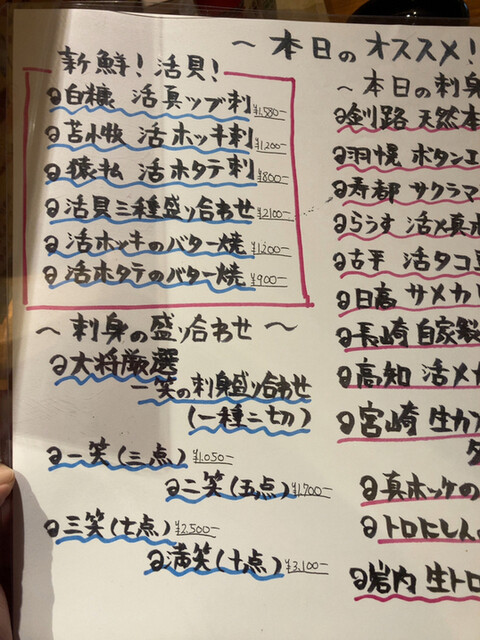 ～本日のオススメ！
新鮮！活貝！
白糠 活真ツブ刺 ¥1,580-
苫小牧 活ホッキ刺 ¥1,200-
猿払 活ホタテ刺 ¥800-
活貝三種盛り合わせ ¥2,100-
活ホッキのバター焼 ¥1,200-
活ホタテのバター焼 ¥900-
～刺身の盛り合わせ～
大将厳選
一笑の刺身盛り合わせ
(一種二切)
一笑(三点) ¥1,050-
二笑(五点) ¥1,700-
三笑(七点) ¥2,500-
満笑(十点) ¥3,100-
～本日の刺身
釧路 天然本
羽幌 ボタンエ
寿都 サクラマ
らうす 活〆真ホ
古平 活タコ
日高 サメカ
長崎 自家製
高知 活〆カ
宮崎 生カツ
真ホッケの
トロにしん
岩内 生トロ